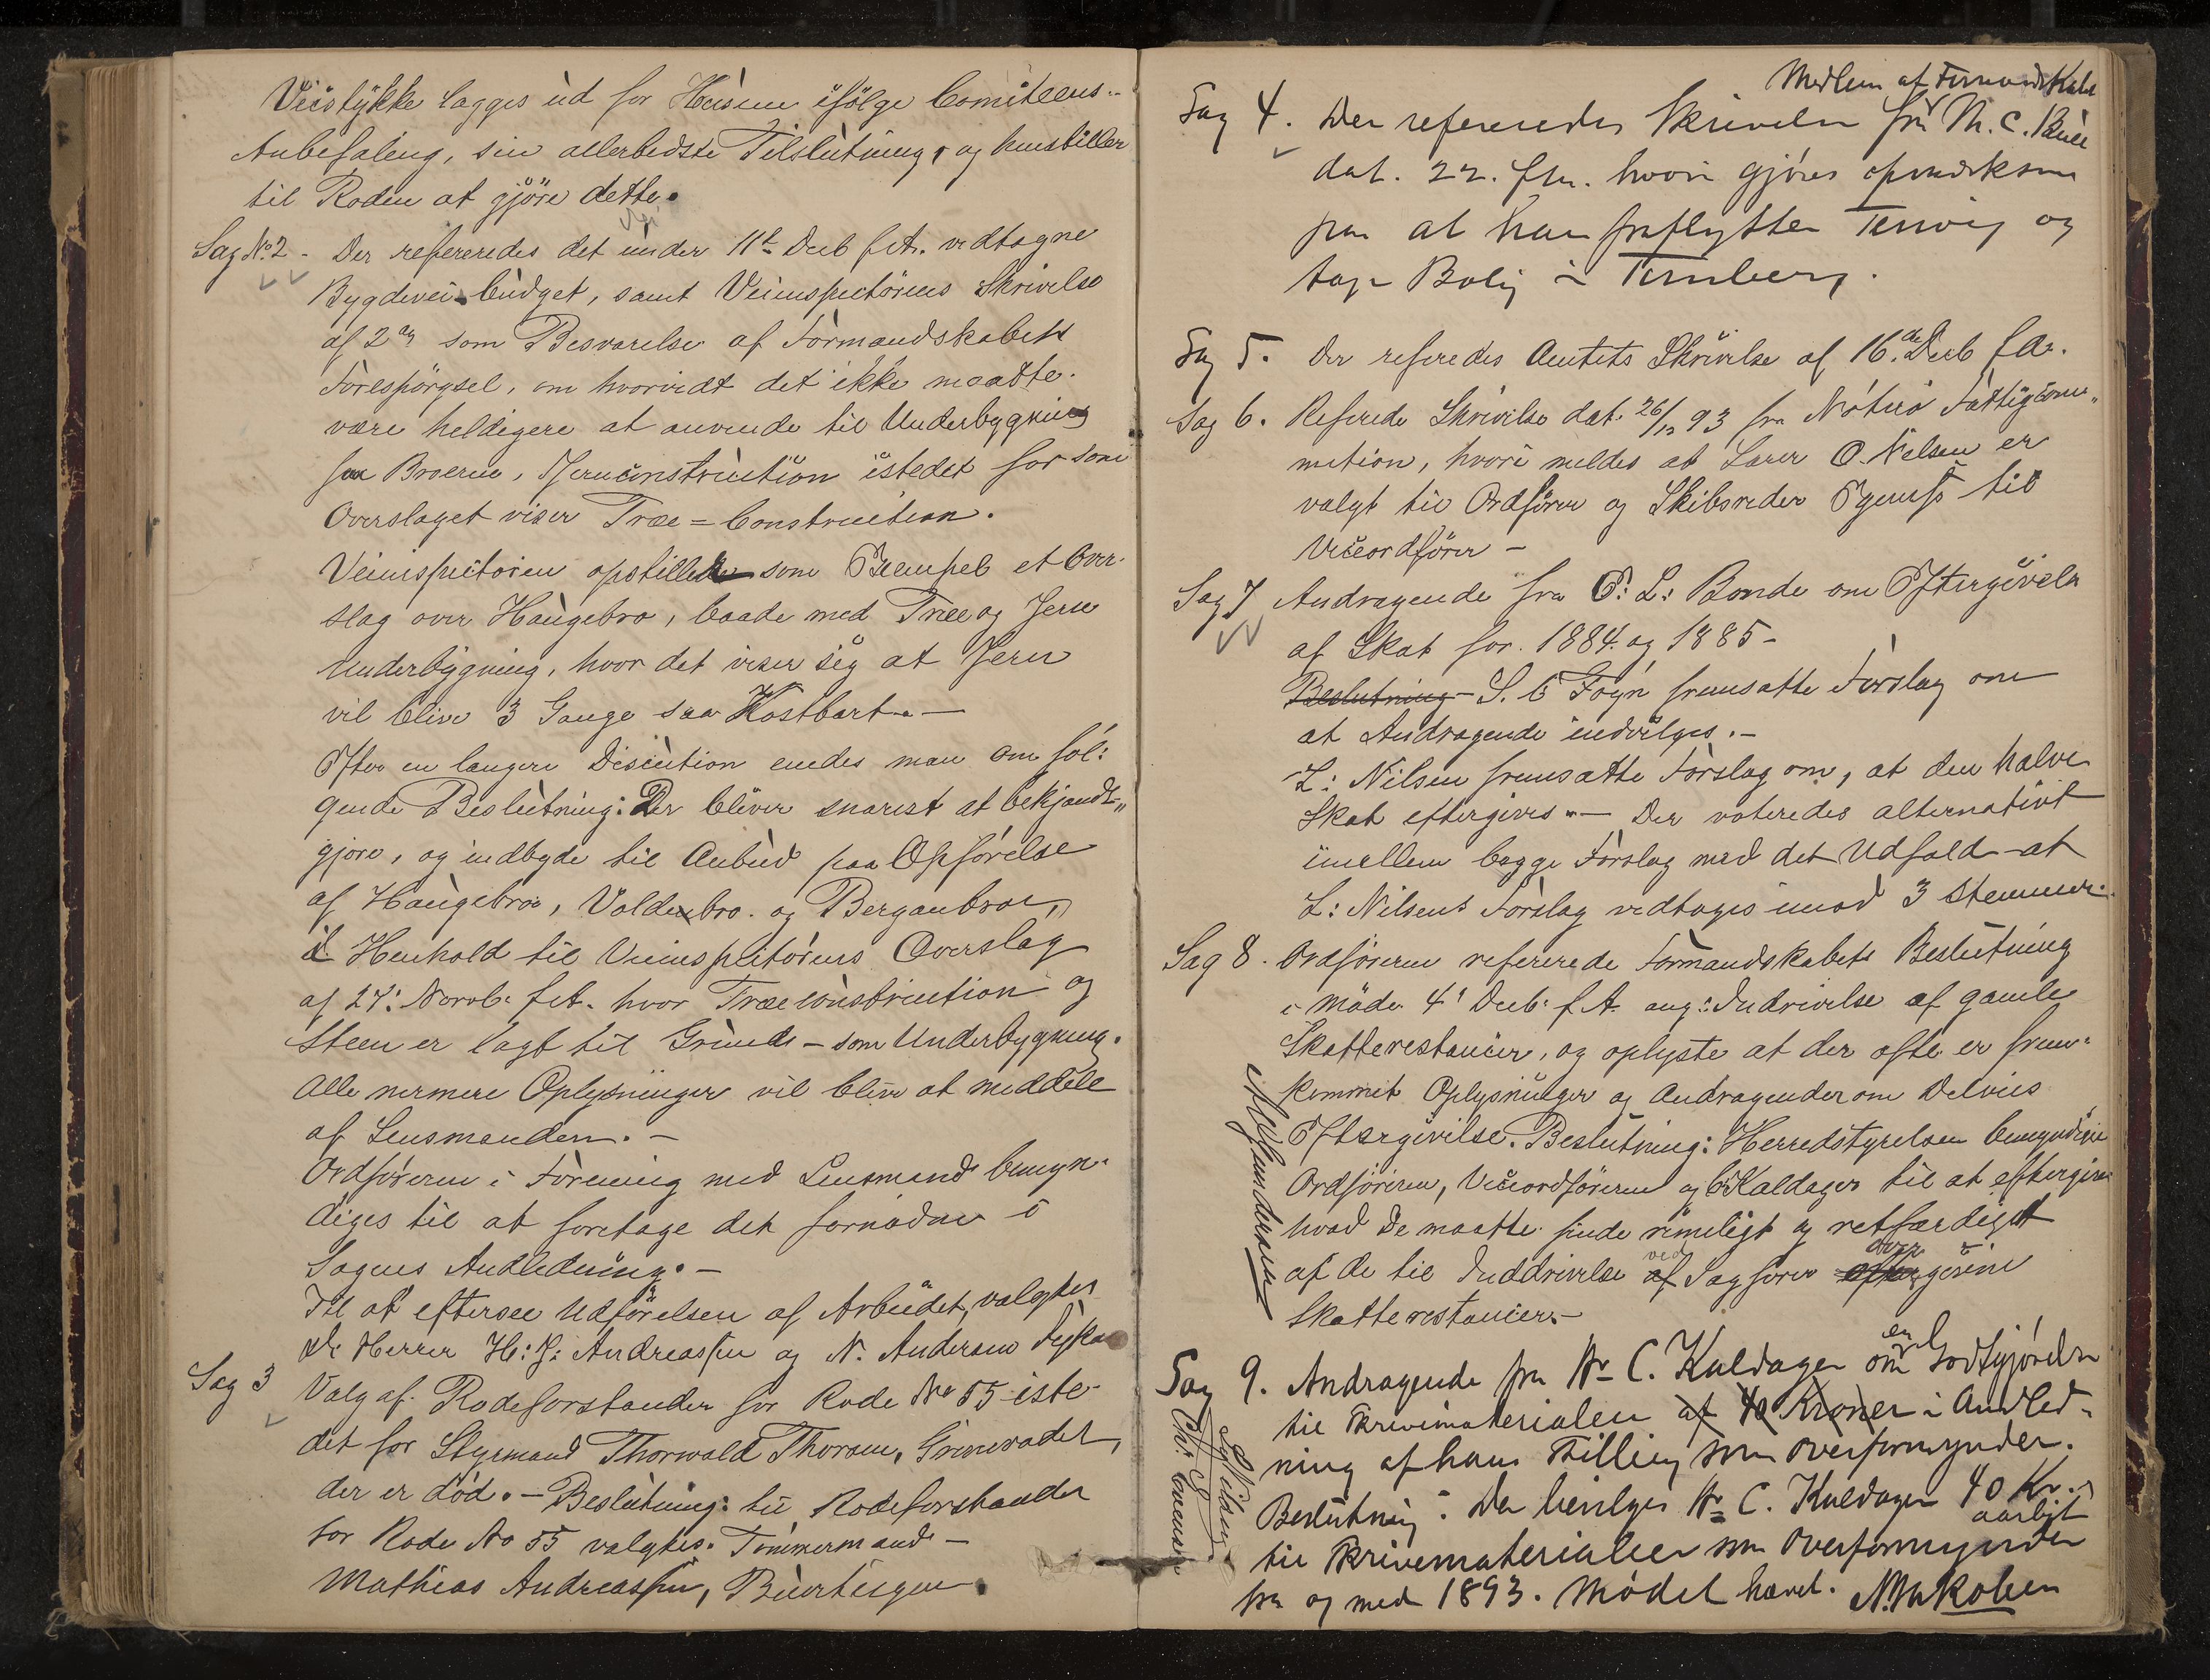 Veistykke lægges ud for Husene ifølge Comiteens
Anbefaling, sin allerbedste Tilslutning, og henstiller
til Roden at gjöre dette.
Sag No. 2 - Der refereredes det under 11te Decb f. A. vedtagne
Bygdevei-budget, samt Veiinspectörens Skrivelse
af 2den som Besvarelse af Formandskabets
Forespörgsel, om hvorvidt det ikke maatte
være heldigere at anvende til Underbygning
paa Broerne, Jernconstruction istedet for som
Overslaget viser Træ=Construction.
Veiinspectoren opstiller som Exempel et Over-
slag over Haugebro, baade med Træ og Jern
Underbygning, hvor det viser sig at Jern
vil blive 3 Gange saa Kostbart. —
Efter en længere Discution enedes man om föl:
gende Beslutning: Der bliver snarest at bekjendt„
gjøre, og indbyde til Anbud paa Opförelse
af Haugebroe, Voldenbro. og Berganbroe,
i Henhold til Veiinspectörens Overslag
af 27: Novb: f. A. hvor Træconstruction og
Steen er lagt til Grund - som Underbygning.
Alle nærmere Oplysninger vil blive at meddele
af Lensmanden. -
Ordföreren i Forening med Lensmand bemyn-
diges til at foretage det fornødne i
Sagens Andledning. -
Til at eftersee Udförelsen af Arbeidet, valgtes
de Herrer H: J: Andreassen og N. Andersen
Sag 3 Valg af Rodeforstander for Rode No 55 iste-
det for Styrmand Thorwald Thorsen, Grimestadet,
der er död. - Beslutning: til Rodeforstander
for Rode No 55 valgtes. Tømmermand -
Mathias Andreassen,
Medlem af Formandskabet
Sag 4. Der refereredes Skrivelse fra M. C. Bull
dat. 22. f.m. hvori gjøres opmærksom
paa at han fraflytter Tenvig og
tage Bolig i Tønsberg.
Sag 5. Der referedes Amtets Skrivelse af 16de Decb f. A.
Sag 6. Referede Skrivelse dat. 26/12 93 fra Nøterø Fattigcom„
mition, hvori meldes at Lærer O. Nilsen er
valgt til Ordförer og Skibsreder til
Viceordförer -
Sag 7 Andragende fra E: L: Bonde om Eftergivelse
af Skat for 1884 og 1885 -
Beslutning - S. C Føyn fremsatte Forslag om
at Andragende indvilges. -
L: Nilsen fremsatte Forslag om, at den halve
Skat eftergives. — Der voteredes alternativt
imellem begge Forslag med det Udfald at
L: Nilsens Forslag vedtoges imod 3 Stemmer.
Sag 8. Ordföreren refererede Formandskabets Beslutning
i möde 4de Decb: f. A. ang: Inddrivelse af gamle
Skatterestancer, og oplyste at der ofte er frem-
kommet Oplysninger og Andragender om Delvis
Eftergivelse. Beslutning: Herredstyrelsen bemyndiger
Ordföreren, Viceordföreren og C. Kaldager til at eftergive
hvad De maatte finde rimeligt og retfærdigt
af de til Inddrivelse af ved Sagfører over givne
Skatterestancer. -
Sag 9. Andragende fra Hr C. Kaldager om en Godtgjørelse
til Skrivematerialer af 40 Kroner i Andled-
ning af hans Stilling som Overformynder.
Beslutning: Der bevilges Hr C. Kaldager 40 Kr.
aarligt
til Skrivematerialier som Overformynder
fra og med 1893. Mødet hævet. N. M. Jakobsen